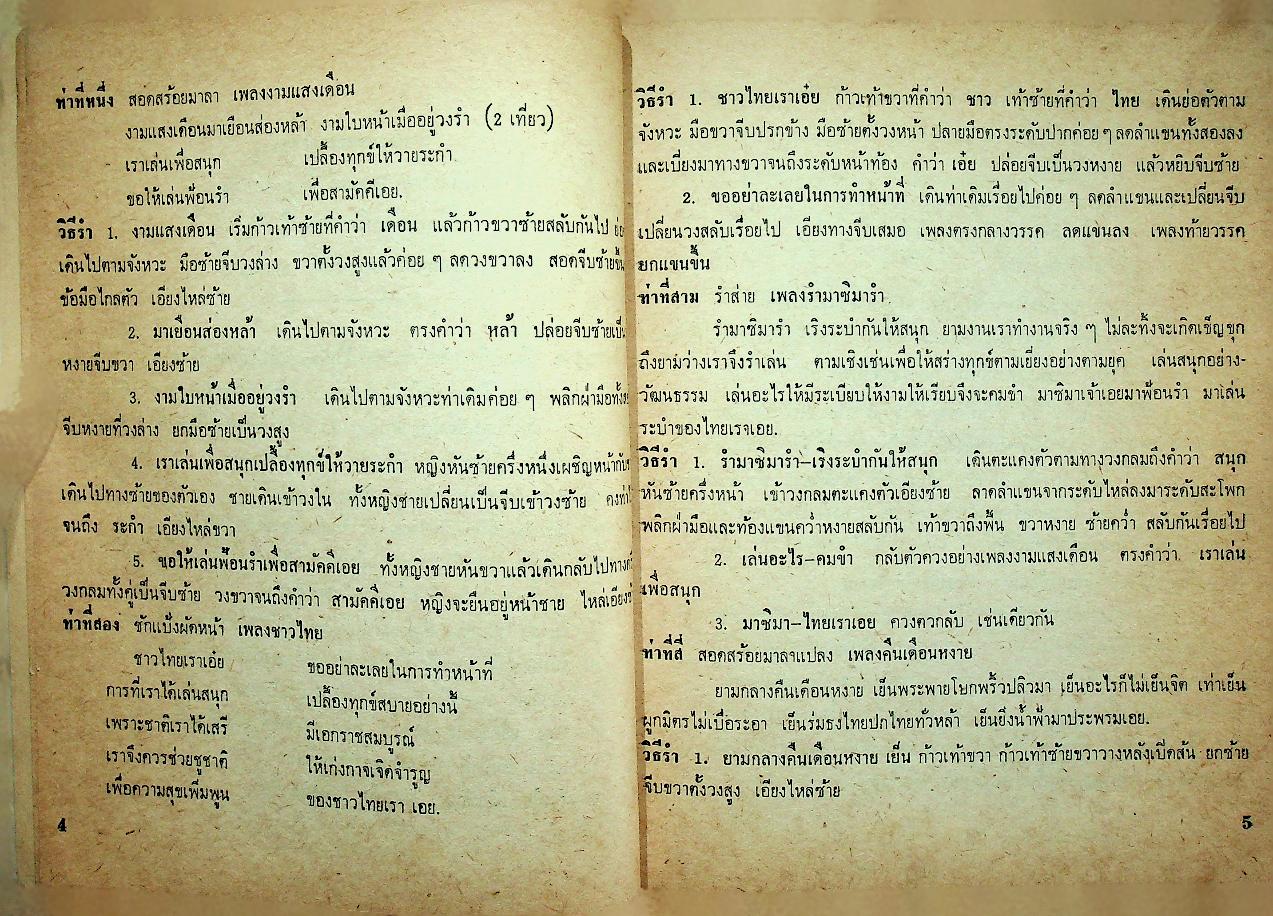 ท่าที่หนึ่ง สอดสร้อยมาลา เพลงงามแสงเดือน
งามแสงเดือนมาเยือนส่องหล้า งามใบหน้าเมื่ออยู่วงรำ (2 เที่ยว)
เราเล่นเพื่อสนุก เปลื้องทุกข์ให้วายระกำ
ขอให้เล่นฟ้อนรำ เพื่อสามัคคีเอย.
วิธีรำ 1. งามแสงเดือน เริ่มก้าวเท้าซ้ายที่คำว่า เดือน แล้วก้าวขวาซ้ายสลับกันไป
เดินไปตามจังหวะ มือซ้ายจีบวงล่าง ขวาตั้งวงสูงแล้วค่อย ๆ ลดวงขวาลง สอดจีบซ้ายขึ้น
ข้อมือไกลตัว เอียงไหล่ซ้าย
2. มาเยือนส่องหล้า เดินไปตามจังหวะ ตรงคำว่า หล้า ปล่อยจีบซ้ายเป็น
หงายจีบขวา เอียงซ้าย
3. งามใบหน้าเมื่ออยู่วงรำ เดินไปตามจังหวะท่าเดิมค่อย ๆ พลิกฝ่ามือ
จีบหงายที่วงล่าง ยกมือซ้ายเป็นวงสูง
4. เราเล่นเพื่อสนุกเปลื้องทุกข์ให้วายระกำ หญิงหันซ้ายครึ่งหนึ่งเผชิญหน้ากับ
เดินไปทางซ้ายของตัวเอง ชายเดินเข้าวงใน ทั้งหญิงชายเปลี่ยนเป็นจีบเข้าวงซ้าย
จนถึง ระกำ เอียงไหล่ขวา
5. ขอให้เล่นฟ้อนรำเพื่อสามัคคีเอย ทั้งหญิงชายหันขวาแล้วเดินกลับไปทาง
วงกลมทั้งคู่เป็นจีบซ้าย วงขวาจนถึงคำว่า สามัคคีเอย หญิงจะยืนอยู่หน้าชาย ไหล่เอียง
ท่าที่สอง ชักแป้งผัดหน้า เพลงชาวไทย
ชาวไทยเราเอ๋ย ขออย่าละเลยในการทำหน้าที่
การที่เราได้เล่นสนุก เปลื้องทุกข์สบายอย่างนี้
เพราะชาติเราได้เสรี มีเอกราชสมบูรณ์
เราจึงควรช่วยชูชาติ ให้เก่งกาจเจิดจำรูญ
เพื่อความสุขเพิ่มพูน ของชาวไทยเรา เอย.
4
วิธีรำ 1. ชาวไทยเราเอ๋ย ก้าวเท้าขวาที่คำว่า ชาว เท้าซ้ายที่คำว่า ไทย เดินย่อตัวตาม
จังหวะ มือขวาจีบปรกข้าง มือซ้ายตั้งวงหน้า ปลายมือตรงระดับปากค่อย ๆ ลดลำแขนทั้งสองลง
และเบี่ยงมาทางขวาจนถึงระดับหน้าท้อง คำว่า เอ๋ย ปล่อยจีบเป็นวงหงาย แล้วหยิบจีบซ้าย
2. ขออย่าละเลยในการทำหน้าที่ เดินท่าเดิมเรื่อยไปค่อย ๆ ลดลำแขนและเปลี่ยนจีบ
เปลี่ยนวงสลับเรื่อยไป เอียงทางจีบเสมอ เพลงตรงกลางวรรค ลดแขนลง เพลงท้ายวรรค
ยกแขนขึ้น
ท่าที่สาม รำส่าย เพลงรำมาซิมารำ
รำมาซิมารำ เริงระบำกันให้สนุก ยามงานเราทำงานจริง ๆ ไม่ละทิ้งจะเกิดเข็ญขุก
ถึงยามว่างเราจึงรำเล่น ตามเชิงเช่นเพื่อให้สร่างทุกข์ตามเยี่ยงอย่างตามยุค เล่นสนุกอย่าง-
วัฒนธรรม เล่นอะไรให้มีระเบียบให้งามให้เรียบจึงจะคมขำ มาซิมาเจ้าเอยมาฟ้อนรำ มาเล่น
ระบำของไทยเรจเอย.
วิธีรำ 1. รำมาซิมารำ–เริงระบำกันให้สนุก เดินตะแคงตัวตามทางวงกลมถึงคำว่า สนุก
หันซ้ายครึ่งหน้า เข้าวงกลมตะแคงตัวเอียงซ้าย ลาดลำแขนจากระดับไหล่ลงมาระดับสะโพก
พลิกฝ่ามือและท้องแขนคว่ำหงายสลับกัน เท้าขวาถึงพื้น ขวาหงาย ซ้ายคว่ำ สลับกันเรื่อยไป
2. เล่นอะไร–คมขำ กลับตัวควงอย่างเพลงงามแสงเดือน ตรงคำว่า เราเล่น
เพื่อสนุก
3. มาซิมา–ไทยเราเอย ควงตวกลับ เช่นเดียวกัน
ท่าที่สี่ สอดสร้อยมาลาแปลง เพลงคืนเดือนหงาย
ยามกลางคืนเดือนหงาย เย็นพระพายโบกพริ้วปลิวมา เย็นอะไรก็ไม่เย็นจิต เท่าเย็น
ผูกมิตรไม่เบื่อระอา เย็นร่มธงไทยปกไทยทั่วหล้า เย็นยิ่งน้ำฟ้ามาประพรมเอย.
วิธีรำ 1. ยามกลางคืนเดือนหงาย เย็น ก้าวเท้าขวา ก้าวเท้าซ้ายขวาวางหลังเปิดส้น ยกซ้าย
จีบขวาตั้งวงสูง เอียงไหล่ซ้าย
5